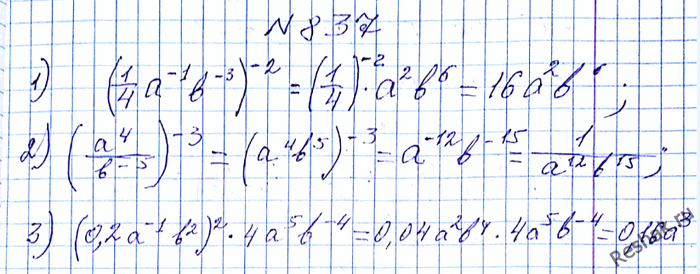 N 837
1) (1/4 a^-1 b^-3)^-2 = (1/4)^-2 · a^2 b^6 = 16a^2 b^6 ;
2) (a^4/b^-5)^-3 = (a^4 b^5)^-3 = a^-12 b^-15 = 1/(a^12 b^15) ;
3) (0,2a^-1 b^2)^2 · 4a^5 b^-4 = 0,04a^2 b^4 · 4a^5 b^-4 = 0,16a^3